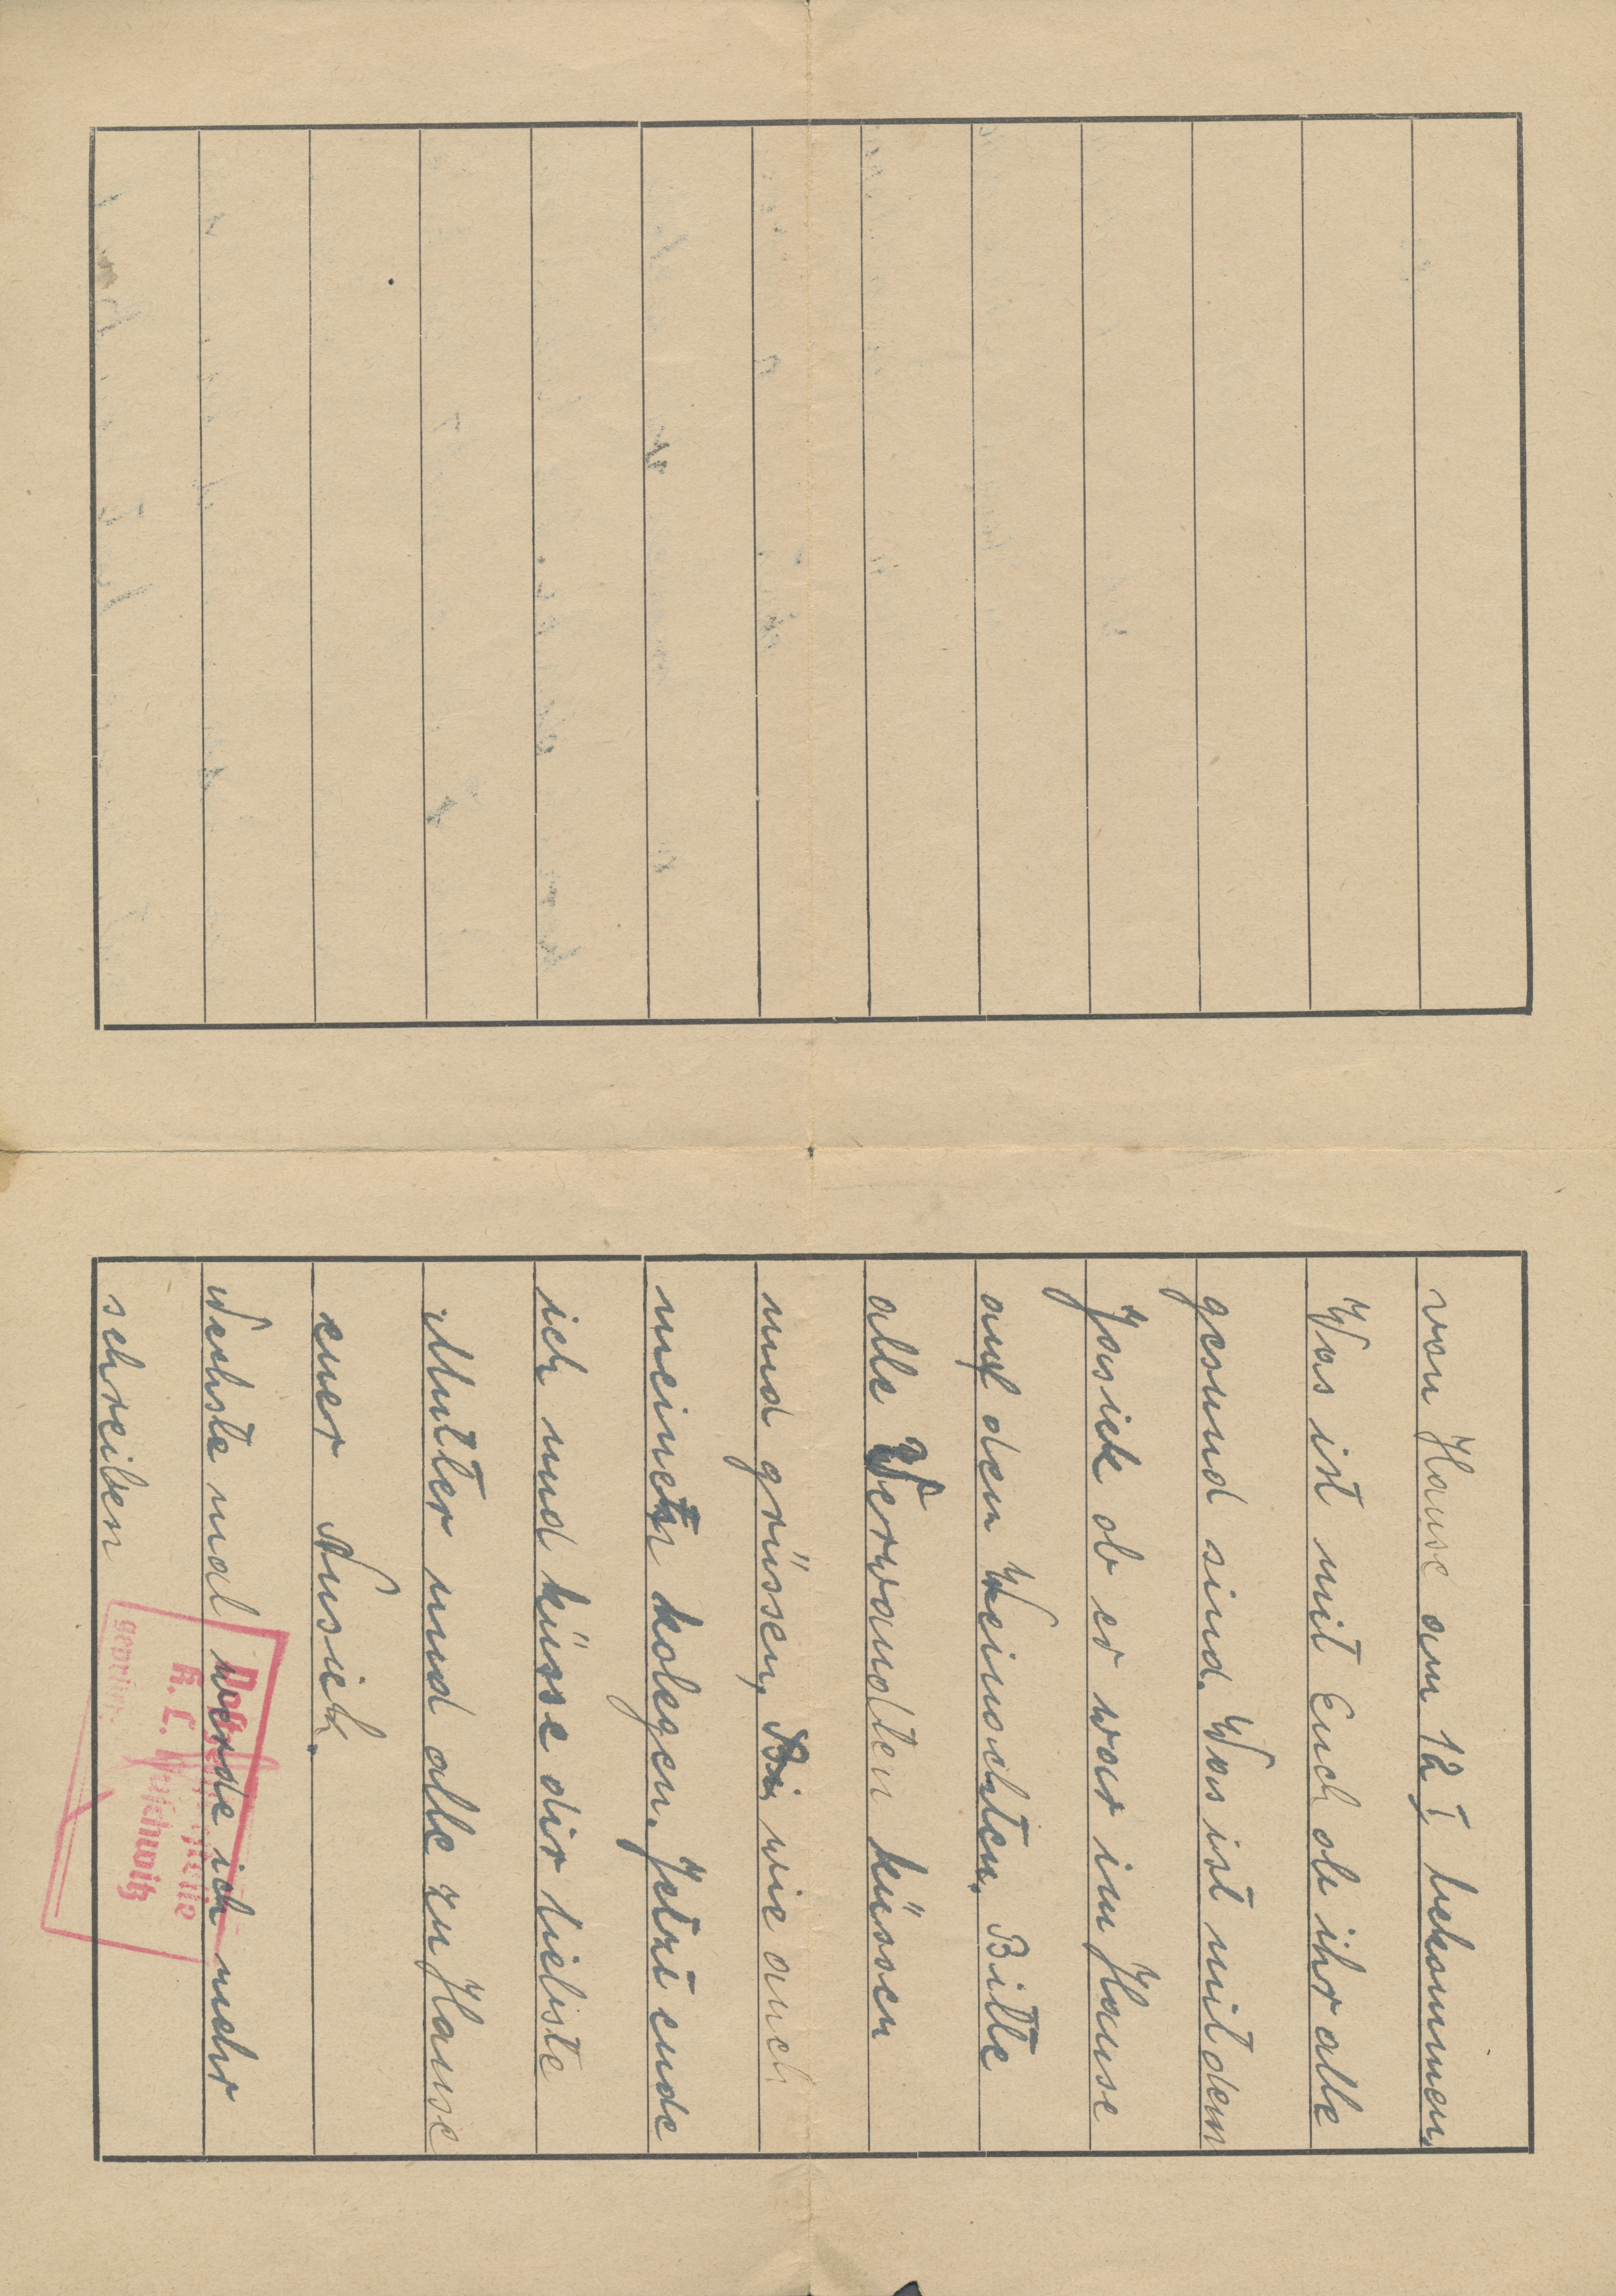 von Hause am 12 I bekommen.
Was ist mit Euch ob ihr alle
gesund sind. Was ist mit dem
Jasiek ob er war im Hause
auf den Weinachten. Bitte
alle Verwandten küssen
und grüssen, wie auch
meinen kolegen. Jetzt ende
ich und küsse dir liebste
Mutter und alle zu Hause
euer Nusiek.
Nechste mal werde ich mehr
schreiben
K. L. Auschwitz
geprüft